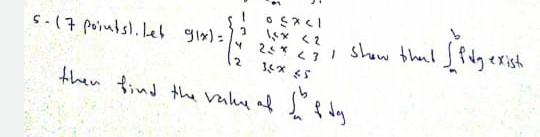 5-(7 points). Let g(x) = { 1 0 ≤ x < 1
3 1 ≤ x < 2
4 2 ≤ x < 3
2 3 ≤ x ≤ 5 , show that ∫_a^b f dg exists
then find the value of ∫_a^b f dg